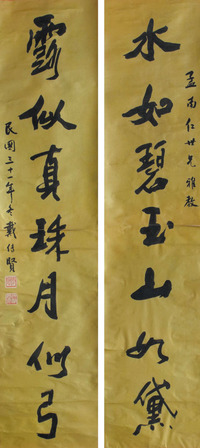 孟南仁世兄雅教
水如碧玉山如黛
露似真珠月似弓
民國三十一年冬戴傳賢